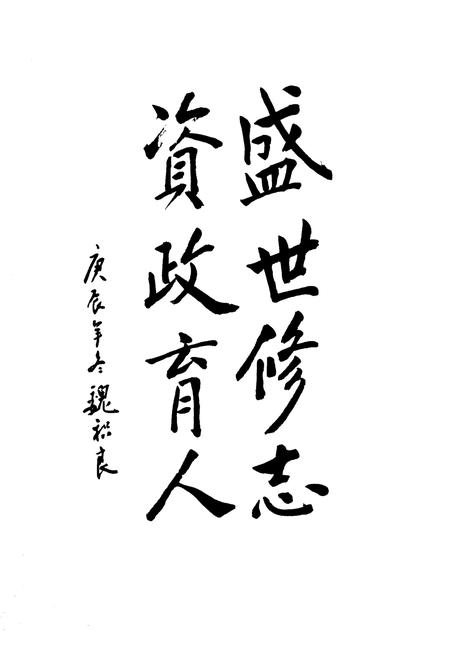 盛世修志
資政育人
庚辰年冬魏初良